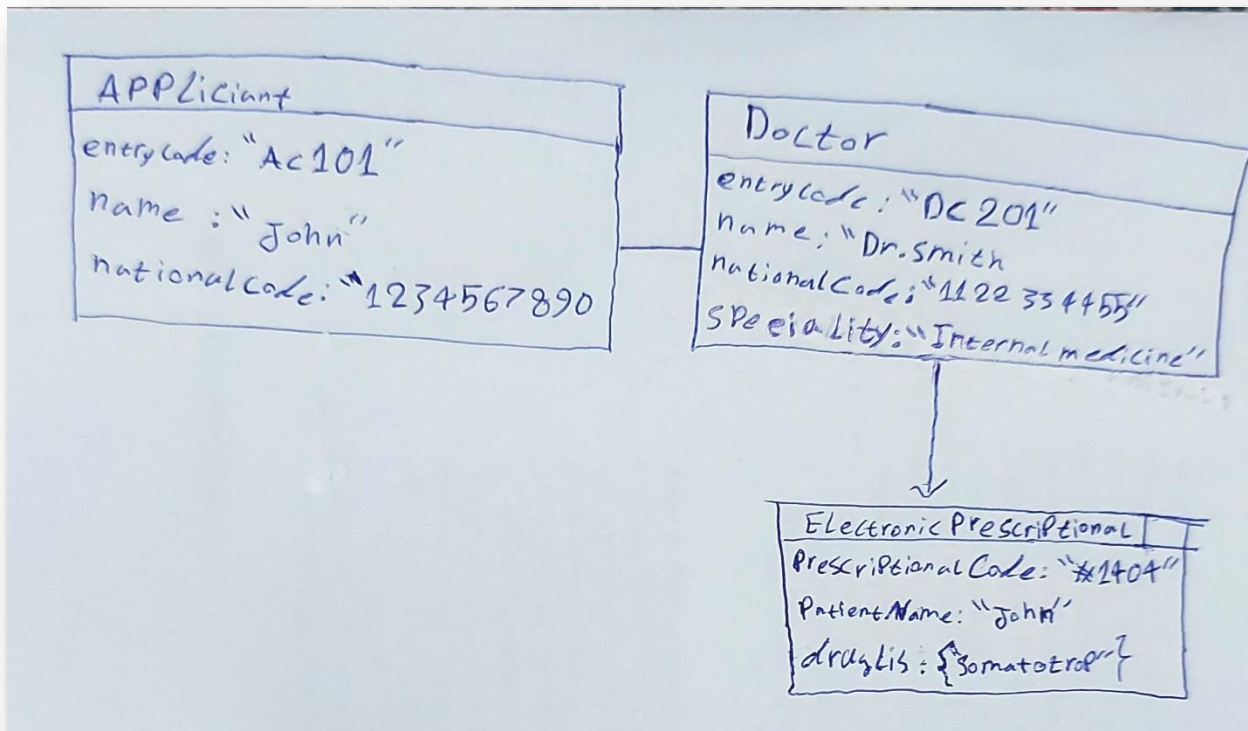 APPLiciant
entrycode: "Ac101"
name : "John"
nationalcode: "1234567890
Doctor
entrycode: "DC201"
name: "Dr.smith
nationalCode: "1122334455"
speciality: "Internal medicine"
Electronic Prescriptional
PrescriptionalCode: "#1404"
PatientName: "John"
drugLis: {"somatotrop"}